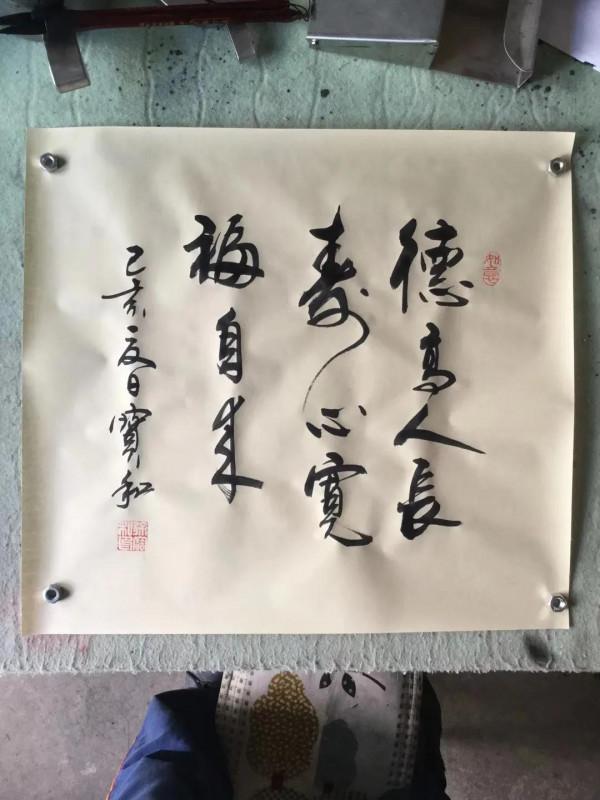 德高人長
壽心寬
福自来
己亥夏日寶和